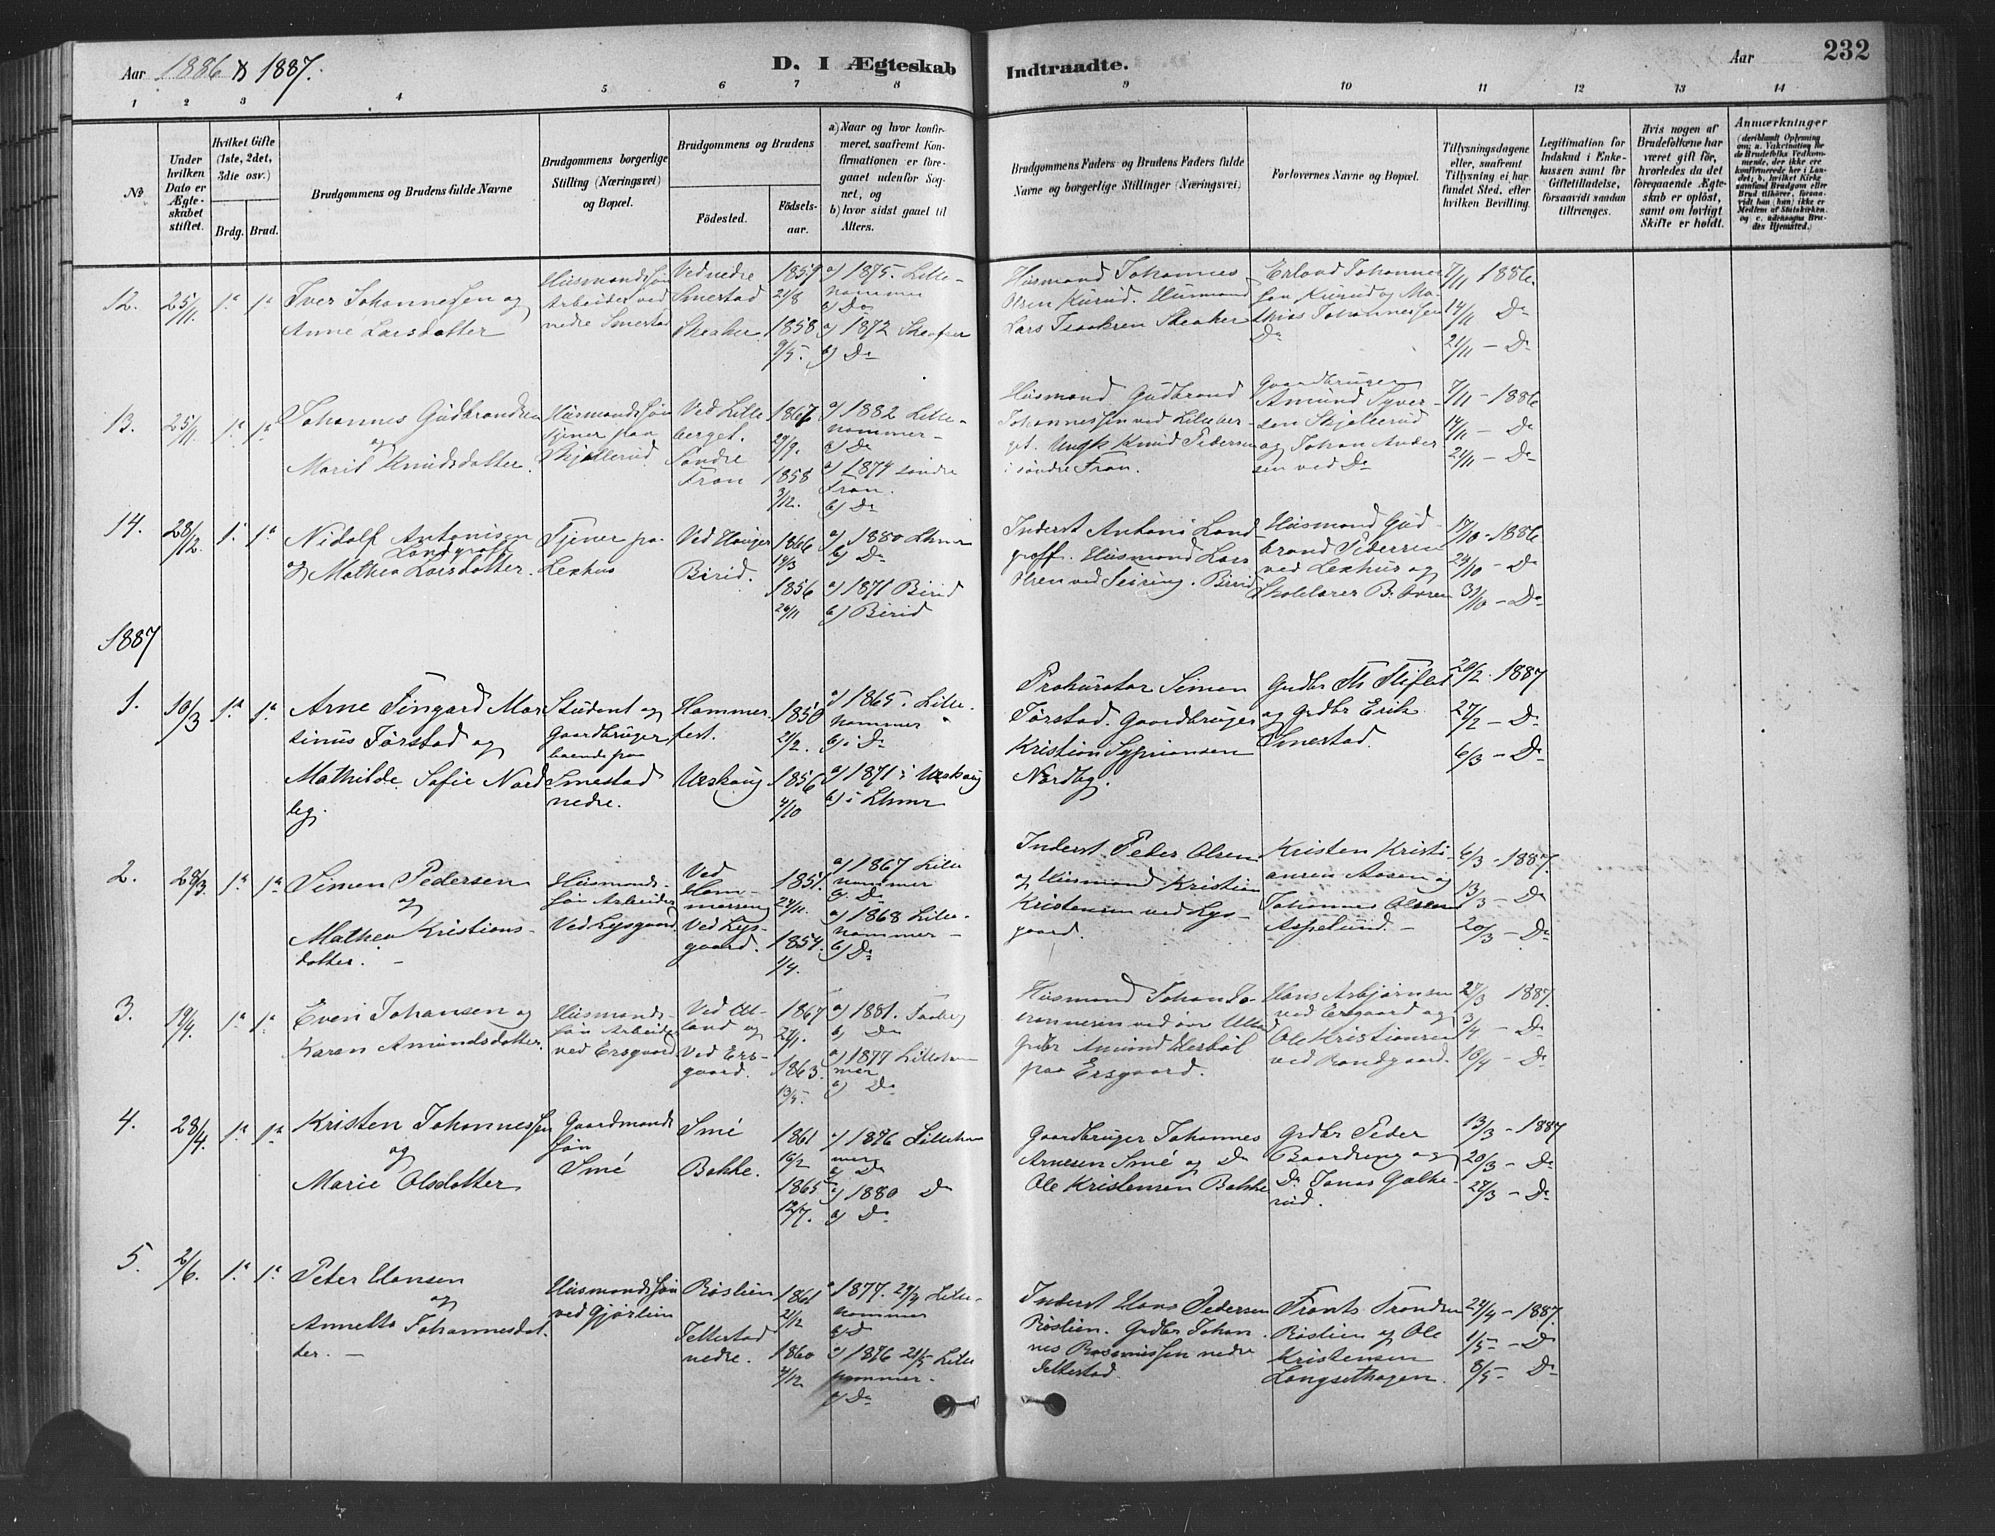 Aar 1886 & 1887.
D. I Ægteskab Indtraadte.
Aar
232
1 2 3 4 5 6 7 8 9 10 11 12 13 14
No
Under hvilken Dato er Ægteskabet stiftet.
Hvilket Gifte (1ste, 2det, 3die osv.)
Brdg. Brud.
Brudgommens og Brudens fulde Navne
Brudgommens borgerlige Stilling (Næringsvei) og Bopæl.
Brudgommens og Brudens
Födested.
Födsels-aar.
a) Naar og hvor konfirmeret, saafremt Konfirmationen er foregaaet udenfor Sognet, og
b) hvor sidst gaaet til Alters.
Brudgommens Faders- og Brudens Faders fulde Navne og borgerlige Stillinger (Næringsvei)
Forlovernes Navne og Bopæl.
Tillysningsdagene eller, saafremt Tillysning ei har fundet Sted, efter hvilken Bevilling.
Legitimation for Indskud i Enkekassen samt for Giftetilladelse, forsaavidt saadan tiltrænges.
Hvis nogen af Brudefolkene har været gift før, hvorledes da det foregaaende Ægteskab er oplöst, samt om lovligt Skifte er holdt.
Anmærkninger
12. 25/11. 1ª 1ª Iver Johannessen og
Anne Larsdatter
Husmandssøn Arbeider ved nedre Smestad
Ved nedre Smestad
Skaaker
1859 21/8
1858 9/5.
a) 1875. Lillehammer
b) Do
a) 1872
b) Do
Husmand Johannes Olsen Kurud. Husmand Lars Isaaksen
Erland Johannessen Kurud og Mathias Johannessen Do
7/11 1886.
14/11 Do
21/11 – Do
13. 25/11. 1ª 1ª Johannes Gudbrandsen
og
Marit Knudsdatter.
Husmandssøn tjener paa Skjellerud
Ved Lilleberget.
Søndre Fron
1867 29/9.
1858 3/12.
a) 1882 Lillehammer –
b) Do
a) 1874 søndre Fron.
b) Do
Husmand Gudbrand Johannessen ved Lilleberget. Ungk Knud Pedersen i søndre Fron.
Gaardbruger Amund Syversen Skjellerud og Johan Andersen ved Do
7/11 – 1886
14/11 – Do
21/11 – Do
14. 28/12. 1. 1ª Nidolf Antonisen
Landgraff
og Mathea Larsdatter.
Tjener paa Lexhus
Ved Hauger
Birid.
1866 14/3
1856 26/11
a) 1880 Lhmr
b) Do
a) 1871 Birid
b) Birid
Inderst Antoni Landgraff. Husmand Lars Olsen ved Seiring. Birid
Husmand Gudbrand Pedersen ved Lexhus og Skolelærer B.
17/10 – 1886
24/10 – Do
31/10 – Do
1887
1. 10/3 1ª 1ª Arne Fingard Marsinus Tørstad og
Mathilde Sofie Nordby.
Student og Gaardbruger boende paa Smestad nedre.
Hammerfest.
Urskoug
1850 21/2.
1856 4/10
a) 1865. Lillehammer
b) i Do
a) 1871 i Urskoug
b) i Lhmr
Prokurator Simen Tørstad. Gaardbruger Kristian Syprionsen Nordby.
Grdbr Th Stiftstad og Grdbr Erik Smestad.
20/2 1887
27/2 – Do
6/3 – Do
2. 28/3. 1ª 1ª Simen Pedersen
og
Mathea Kristiansdatter. –
Husmandssøn Arbeider Ved Lysgaard
Ved Hammerseng
Ved Lysgaard.
1851. 24/11.
1854. 1/4.
a) 1867 Lillehammer
b) Do
a) 1868 Lillehammer –
b) Do
Inderst Peder Olsen og Husmand Kristian Kristensen ved Lysgaard
Kristen Kristiansen Aasen og Johannes Olsen Aspelund. –
6/3 – 1887.
13/3 – Do
20/3 – Do
3. 19/4. 1ª 1ª Even Johansen og
Karen Amundsdatter.
Husmandssøn Arbeider ved Ersgaard
Ved Ulland og
Ved Ersgaard.
1867 27/1.
1863. 13/5.
a) 1881. Faaberg
b) Do
a) 1877 Lillehammer
b) Do
Husmand Johan ved øvr Ulland Grdbr Amund paa Ersgaard.
Hans Asbjørnsen ved Ersgaard og Ole Kristiansen ved Randgaard.
27/3 1887.
3/4 – Do
10/4 – Do
4. 28/4. 1ª 1ª Kristen Johannessen
og
Marie Olsdatter
Gaardmandssøn Smé
Smé
Bakke.
1861 16/2
1865 12/7.
a) 1876 Lillehammer
b) Do
a) 1880 Do
b) Do
Gaardbruger Johannes Arnesen Smé og Do Ole Kristensen Bakke
Grdbr Peder Baardseng og Do Jonas Galterud.
13/3 – 1887
20/3 – Do
27/3 – Do
5. 2/6. 1ª 1ª Peter Hansen
og
Annette Johannesdatter. –
Husmandssøn ved Gjørlien
Røslien
Jettestad nedre.
1861 21/12
1860 4/12
a) 1877. Lillehammer
b) Do
a) 1876 21/5 Lillehammer.
b) Do
Inderst Hans Pedersen Røslien. Grdbr Johannes Rasmussen nedre Jettestad.
Frants Trondsen Røslien og Ole Kristensen Langsethagen.
24/4 – 1887.
1/5 – Do
8/5 – Do